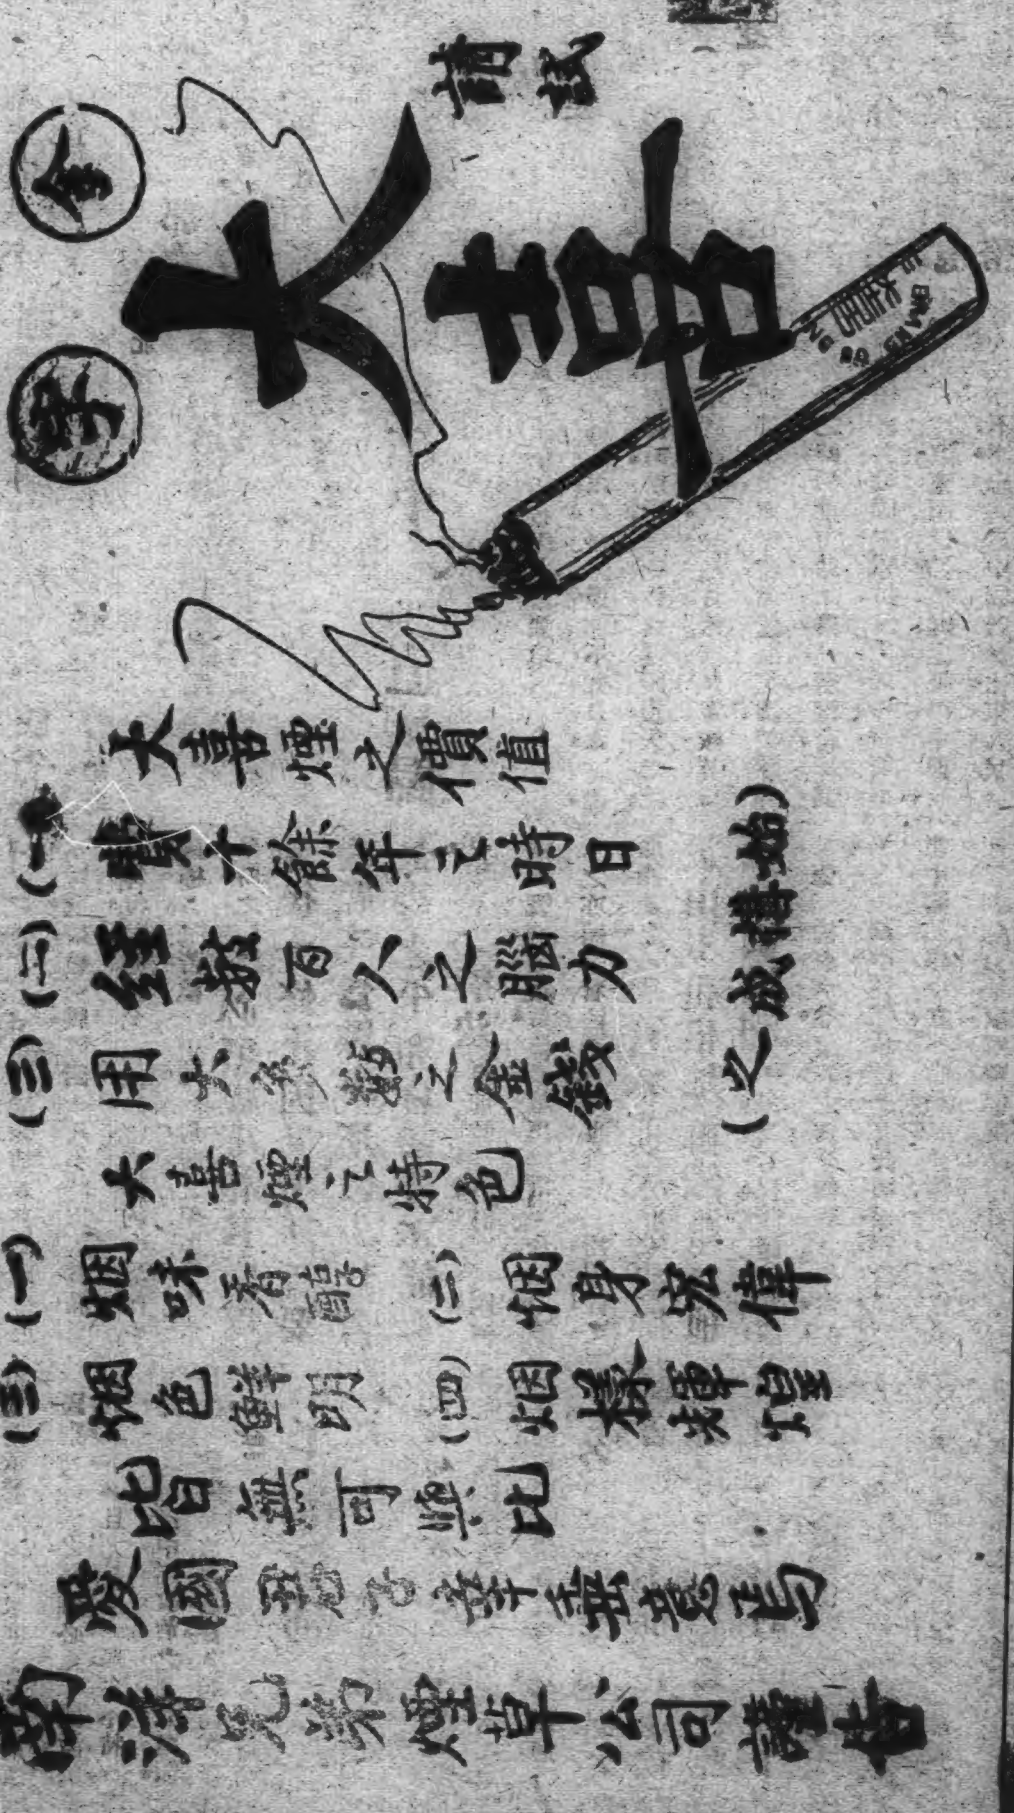 金字
請試
大喜
大喜
大喜煙之價值
(一)費十餘年之時日
(二)經數百人之腦力
(三)用大多數之金錢
(始構成之)
大喜煙之特色
(一)烟味香醇 (二)烟身宏偉
(三)烟色鮮明 (四)烟樣輝煌
皆無可與比
愛國君子幸垂意焉
南洋兄弟煙草公司謹告